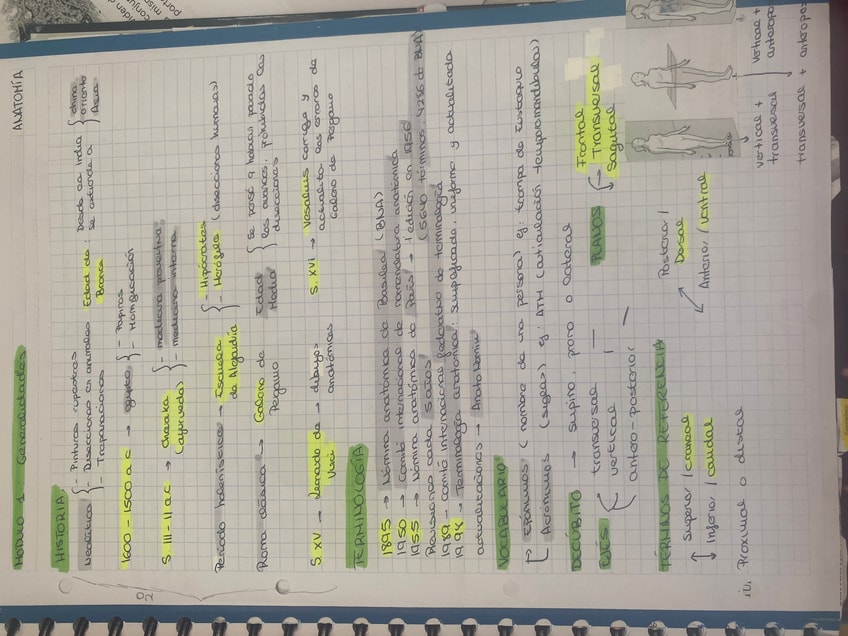 MÓDULO 1 Generalidades ANATOMÍA
HISTORIA
Neolítico { - Pinturas rupestres
- Disecciones en animales
- Trepanaciones
Edad de Bronce : Desde la India se extiende a { china
oriente
Asia
1600 - 1500 a.c → egipto { - Papiros
- Momificación
S. III - II a.c → Charaka (ayurveda) { - medicina preventiva
- medicina interna
Período helenístico → Escuela de Alejadía { - Hipócrates
- Herófilo (disecciones humanas)
Roma clásica → Galeno de Pégamo
Edad Media { Se pensó q habías parado los avances, prohibidas las disecciones
S. XV → Leonardo da Vinci → dibujos anatómicos
S. XVI → Vesalius corrige y actualita los errores de Galeno de Pégamo
TERMINOLOGÍA
1895 → Nómina anatómica de Basilea (BNA)
1950 → Comité internacional de nomenclatura anatómica
1955 → Nómina anatómica de París → 1 edición en 1956
Revisiones cada 5 años (5640 términos 4286 de BNA)
1989 → comité internacional federativo de terminología
1998 → Terminología anatómica: simplificada, uniforme y actualizada
actualizaciones →
VOCABULARIO
→ Epónimos (nombre de una persona) ej: trompa de Eustaquio
→ Acrónimos (siglas) ej: ATM (articulación temporomandibular)
DECÚBITO → supino, prono o lateral
EJES { transversal —
vertical |
antero-posterior /
PLANOS { Frontal
Transversal
Sagital
TÉRMINOS DE REFERENCIA
↑ Superior / craneal
↓ Inferior / caudal
Posterior / Dorsal
Anterior / Ventral
Proximal o distal
vertical + transversal
transversal + anteropos
vertical + anteropo